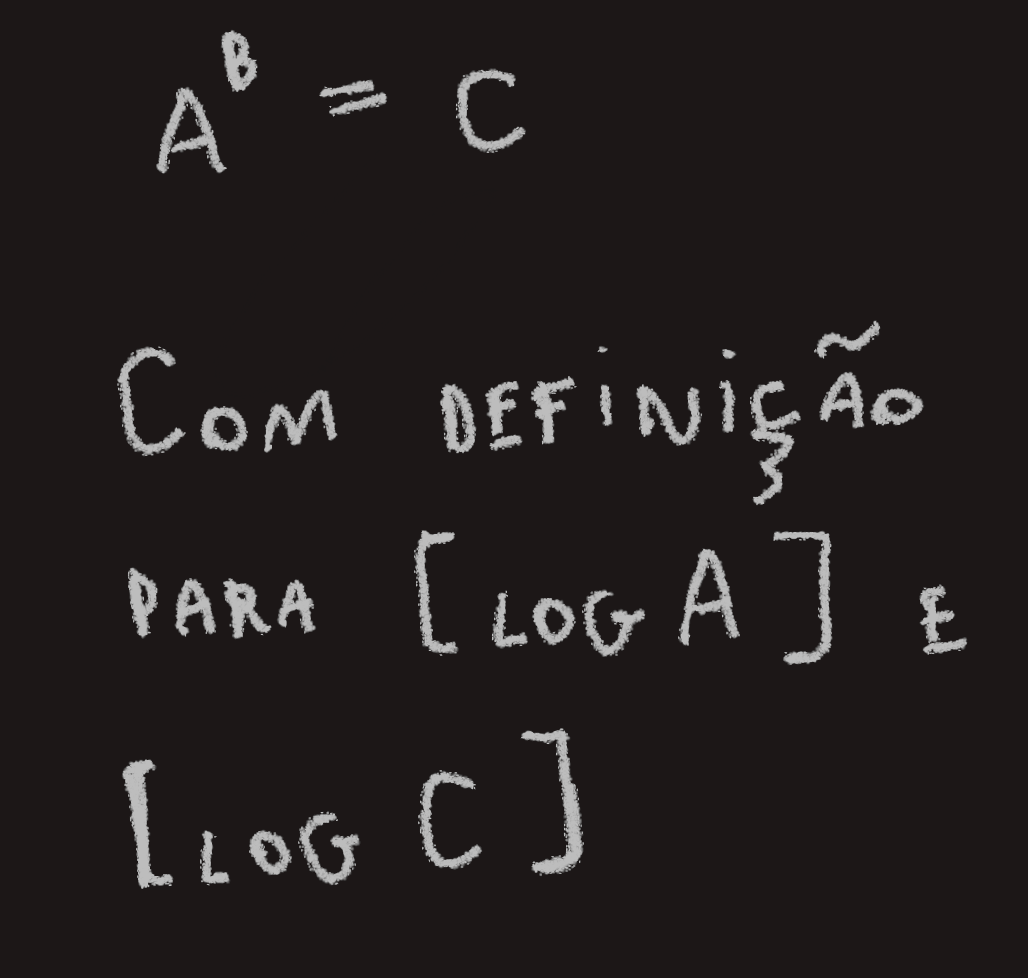 A^B = C
COM DEFiNiÇÃO
PARA [LOG A] E
[LOG C]